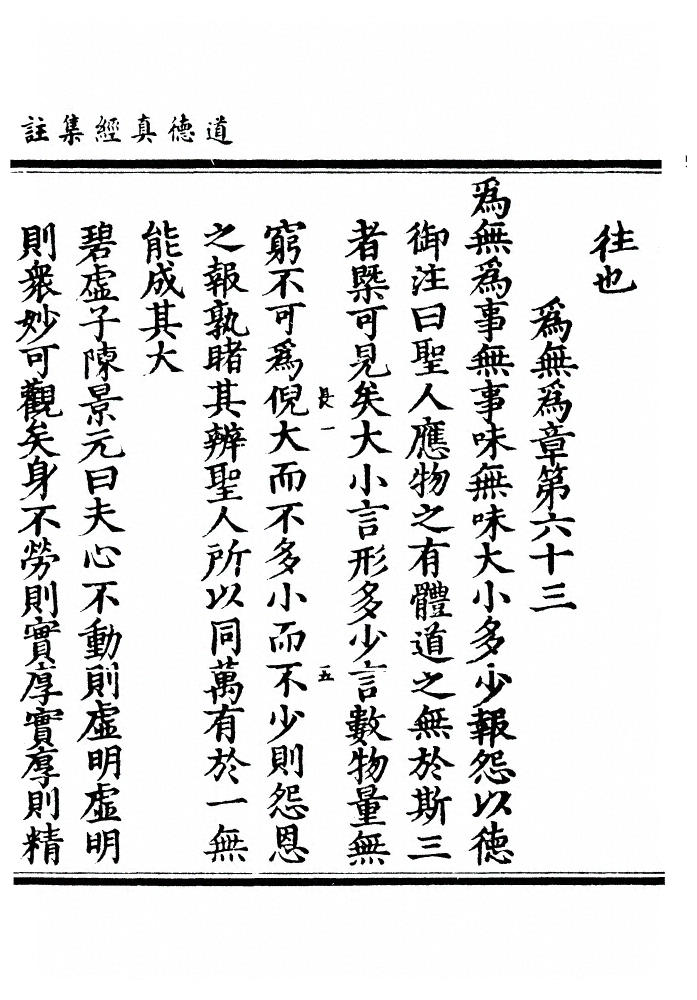 道德真經集註
往也
爲無爲章第六十三
爲無爲事無事味無味大小多少報怨以德
御注曰聖人應物之有體道之無於斯三
者槩可見矣大小言形多少言數物量無
長一
一五
窮不可爲倪大而不多小而不少則怨恩
之報孰睹其辨聖人所以同萬有於一無
能成其大
碧虛子陳景元曰夫心不動則虛明虛明
則衆妙可觀矣身不勞則實厚實厚則精